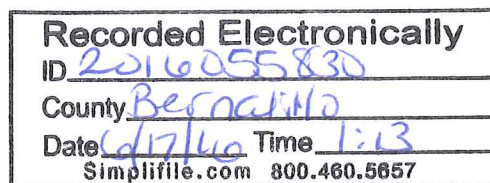 Recorded Electronically
ID 2016055830
County Bernalillo
Date 6/17/16 Time 1:13
Simplifile.com 800.460.5657